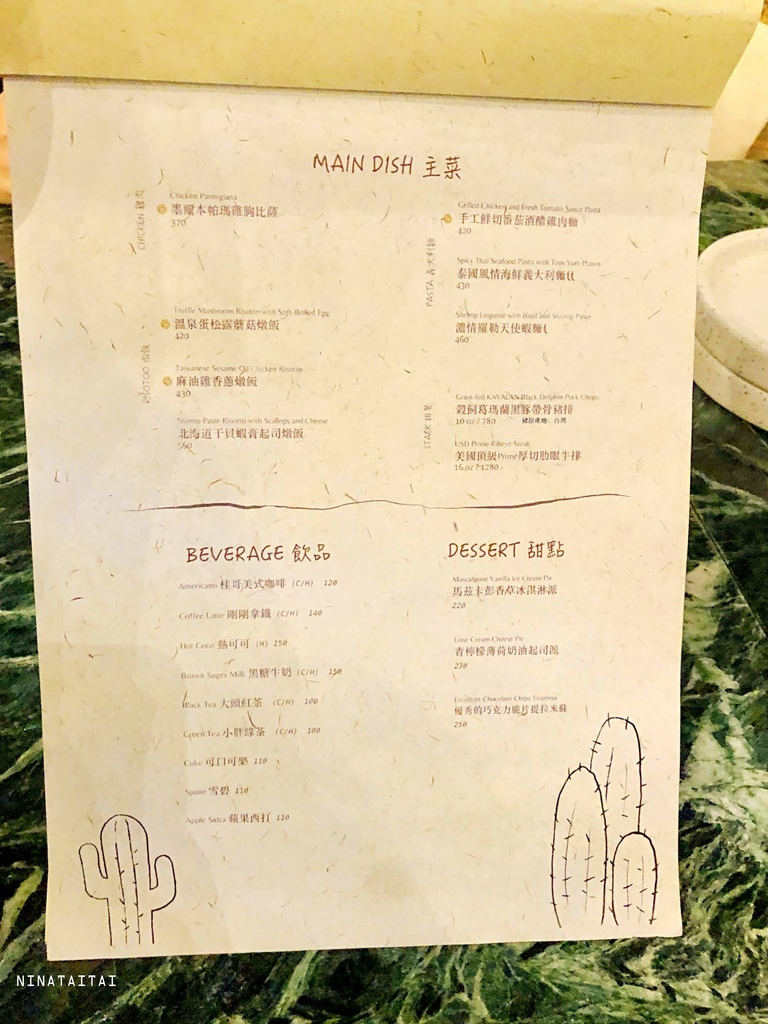 MAIN DISH 主菜
CHICKEN 雞肉
Chicken Parmigiana
墨爾本帕瑪雞胸比薩
370
RISOTOO 燉飯
Truffle Mushroom Risotto with Soft-Boiled Egg
溫泉蛋松露蘑菇燉飯
420
Taiwanese Sesame Oil Chicken Risotto
麻油雞香蔥燉飯
430
Shrimp Paste Risotto with Scallops and Cheese
北海道干貝蝦膏起司燉飯
560
PASTA 義大利麵
Grilled Chicken and Fresh Tomato Sauce Pasta
手工鮮切番茄酒醋雞肉麵
420
Spicy Thai Seafood Pasta with Tom Yum Prawn
泰國風情海鮮義大利麵
430
Shrimp Linguine with Basil and Shrimp Paste
濃情羅勒天使蝦麵
460
STAEK 排餐
Grain-fed KAVALAN Black Dolphin Pork Chops
穀飼葛瑪蘭黑豚帶骨豬排
10 oz / 780 豬話產地: 台灣
USD Prime Ribeye Steak
美國頂級Prime厚切肋眼牛排
16 oz / 1280
BEVERAGE 飲品
Americano 桂哥美式咖啡 (C/H) 120
Coffee Latte 剛剛拿鐵 (C/H) 140
Hot Coco 熱可可 (H) 150
Brown Suger Milk 黑糖牛奶 (C/H) 150
Black Tea 大頭紅茶 (C/H) 100
Green Tea 小胖綠茶 (C/H) 100
Coke 可口可樂 110
Sprite 雪碧 110
Apple Sidra 蘋果西打 110
DESSERT 甜點
Mascarpone Vanilla Ice Cream Pie
馬茲卡彭香草冰淇淋派
220
Lime Cream Cheese Pie
青檸檬薄荷奶油起司派
230
Excellent Chocolate Chips Tiramisu
優秀的巧克力脆片提拉米蘇
250
NINATAITAI